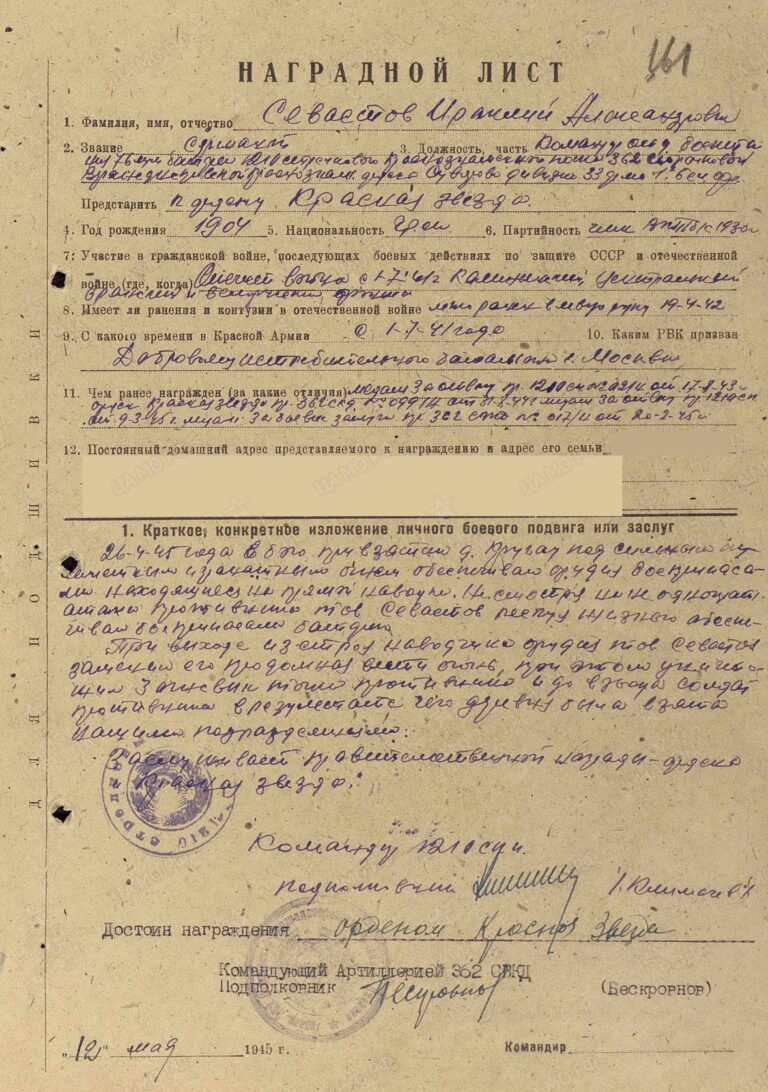 НАГРАДНОЙ ЛИСТ
1. Фамилия, имя, отчество Севастов Ираклий Александрович
2. Звание Сержант 3. Должность, часть Командир отд. боепита
ния 76 мм батареи 1210 стрелкового Краснознаменного полка 362 стрелковой
дивизии 33 Армии 1. Бел фр.
Представить к ордену Красная звезда.
4. Год рождения 1904 5. Национальность Грек 6. Партийность член ВКП(б) с 1930г
7. Участие в гражданской войне, последующих боевых действиях по защите СССР и отечественной
войне (где, когда) Отечест война с 1-7-41г Калининский, Центральный
Брянский и Белорусский фронты
8. Имеет ли ранения и контузии в отечественной войне легко ранен в левую руку 19-4-42
9. С какого времени в Красной Армии с 1-7-41 года 10. Каким РВК призван
Доброволец истребительного батальона г. Москвы
11. Чем ранее награжден (за какие отличия) медаль За отвагу пр. 1210 сп № 021/н от 17-8-43г
орден Красная звезда пр. 362 сд медаль За отвагу пр. 1210 сп
от 9-3-45г медаль За боевые заслуги пр 362 № 017/н от 20-2-45г
12. Постоянный домашний адрес представляемого к награждению и адрес его семьи
1. Краткое, конкретное изложение личного боевого подвига или заслуг
26-4-45 года в бою при взятии д. под сильным пу
леметным и огнем обеспечивал орудия боеприпаса
ми находящиеся на прямой наводке. Не смотря на не однократ
атаки противника тов Севастов рискуя жизнью обеспе
чивал боеприпасами батарею
При выходе из строя наводчика орудия тов Севастов
заменил его продолжая вести огонь, при этом уничто
жил 3 противника и до взвода солдат
противника в результате чего деревня была взята
нашими подразделениями.
Заслуживает правительственной награды - ордена
Красная звезда.
Командир 1210 сп
подполковник /Климачев/
Достоин награждения орденом Красная Звезда
Командующий Артиллерией 362 СВКД
Подполковник (Бескровнов)
"12" мая 1945 г. Командир
ДЛЯ ПОДШИВКИ